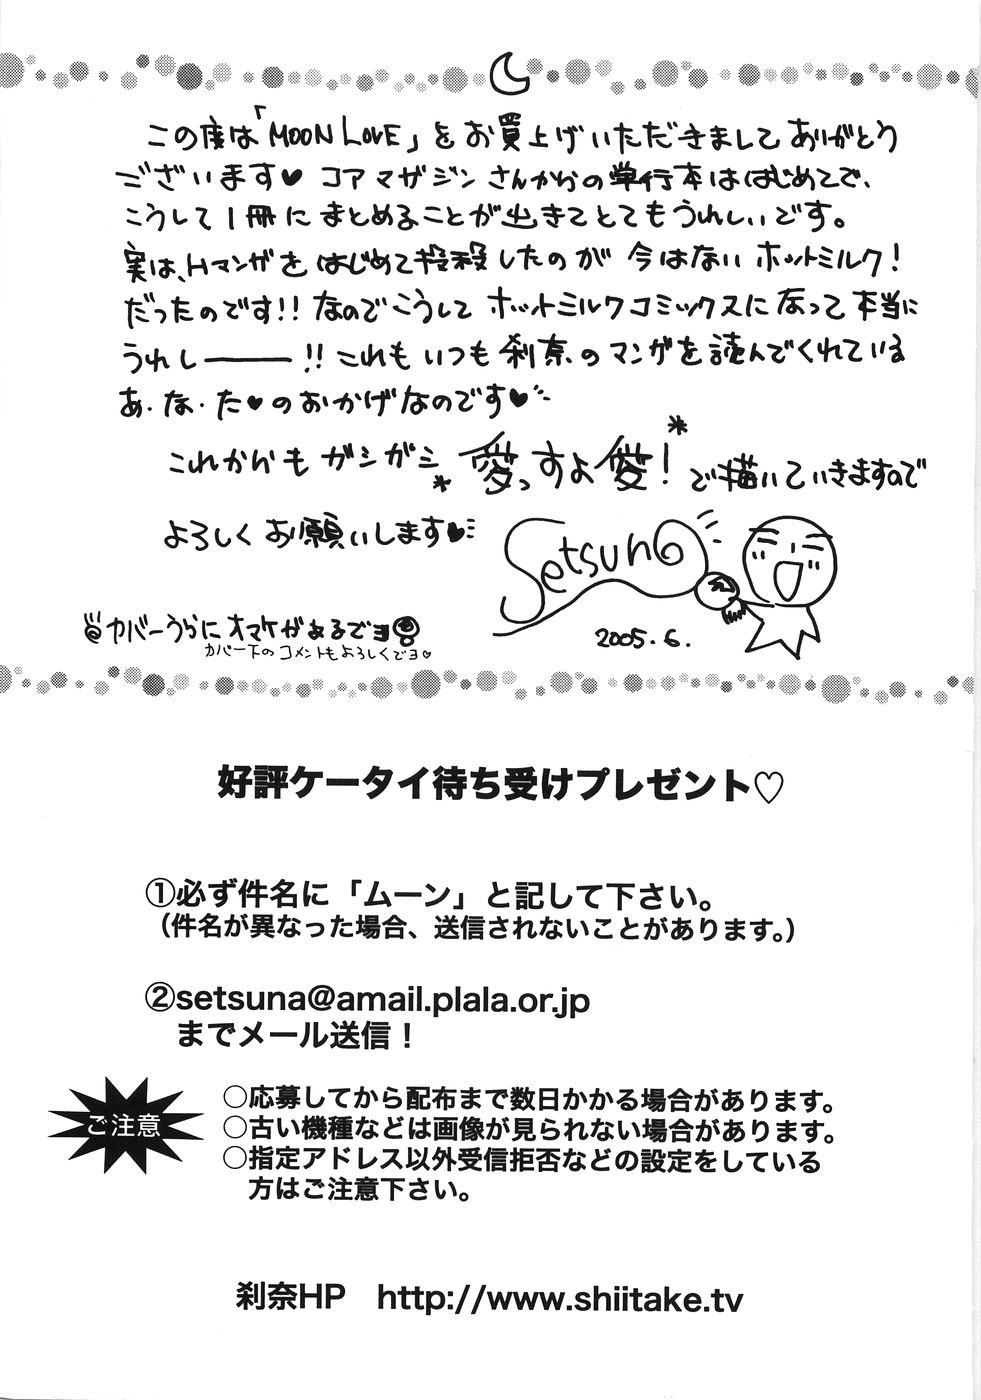 この度は「MOON LOVE」をお買上げいただきましてありがとう
ございます♥ コアマガジンさんからの単行本ははじめてで、
こうして1冊にまとめることが出きてとてもうれしいです。
実は、Hマンガをはじめて投稿したのが今はないホットミルク!
だったのです!! なのでこうしてホットミルクコミックスになって本当に
うれしーーー!! これもいつも刹奈のマンガを読んでくれている
あ・な・た♥のおかげなのです♥
これからもガシガシ愛っすよ愛!で描いていきますので
よろしくお願いします♥
Setsuna
2005.6.
カバーうらにオマケがあるでヨ
カバー下のコメントもよろしくでヨ♥
好評ケータイ待ち受けプレゼント♡
①必ず件名に「ムーン」と記して下さい。
（件名が異なった場合、送信されないことがあります。）
②setsuna@amail.plala.or.jp
までメール送信！
ご注意
○応募してから配布まで数日かかる場合があります。
○古い機種などは画像が見られない場合があります。
○指定アドレス以外受信拒否などの設定をしている
方はご注意下さい。
刹奈HP http://www.shiitake.tv